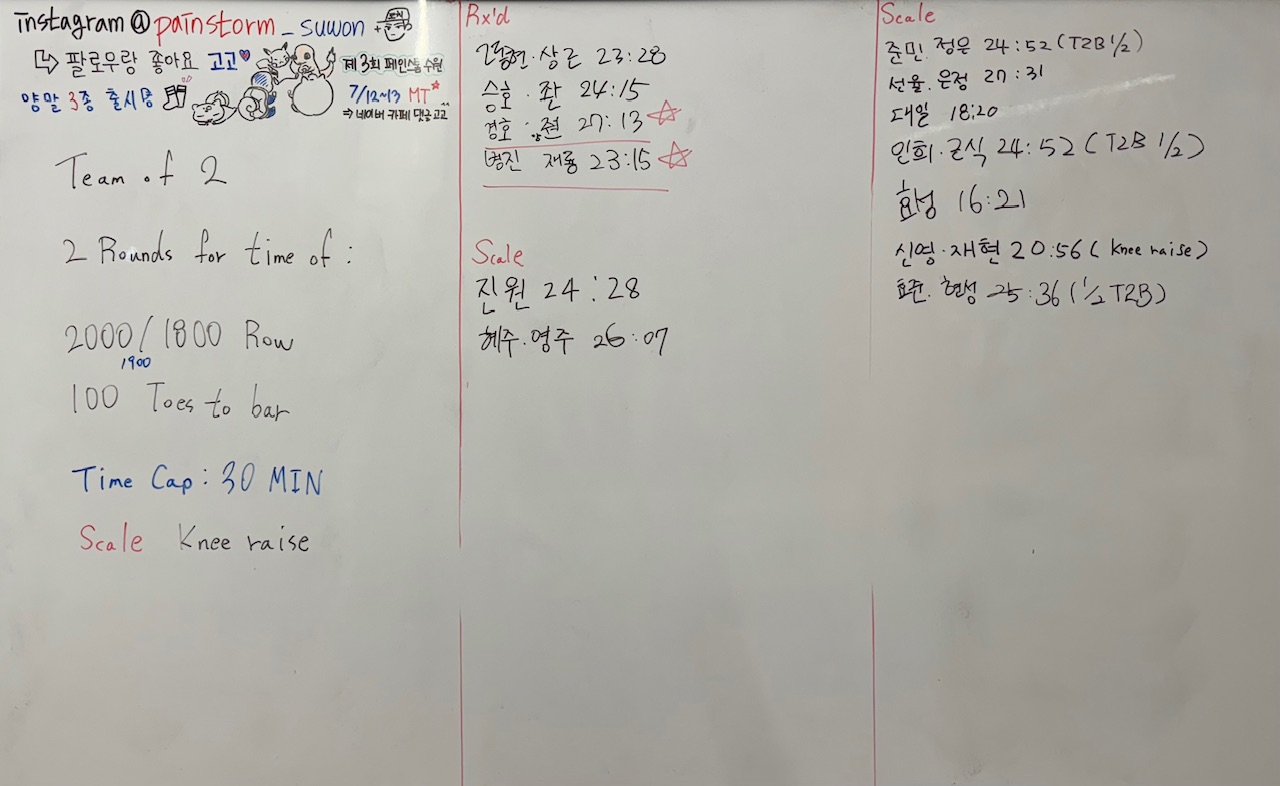 instagram@painstorm_suwon
팔로우랑 좋아요 고고
양말 3종 출시중
제3회 페인스톰 수원
7/12~13 MT
⇒ 네이버 카페 댓글 고고
Team of 2
2 Rounds for time of :
2000/1800 Row
1900
100 Toes to bar
Time Cap : 30 MIN
Scale Knee raise
Rx'd
상근 23:28
승호 · 24:15
경호 · 27:13
병진 재룡 23:15
Scale
진원 24:28
혜주·영주 26:07
Scale
준민. 정은 24:52 (T2B 1/2)
선율. 은정 27:31
대일 18:20
인희·군식 24:52 (T2B 1/2)
효성 16:21
신영·재현 20:56 (Knee raise)
효준. 현성 25:36 (1/2 T2B)